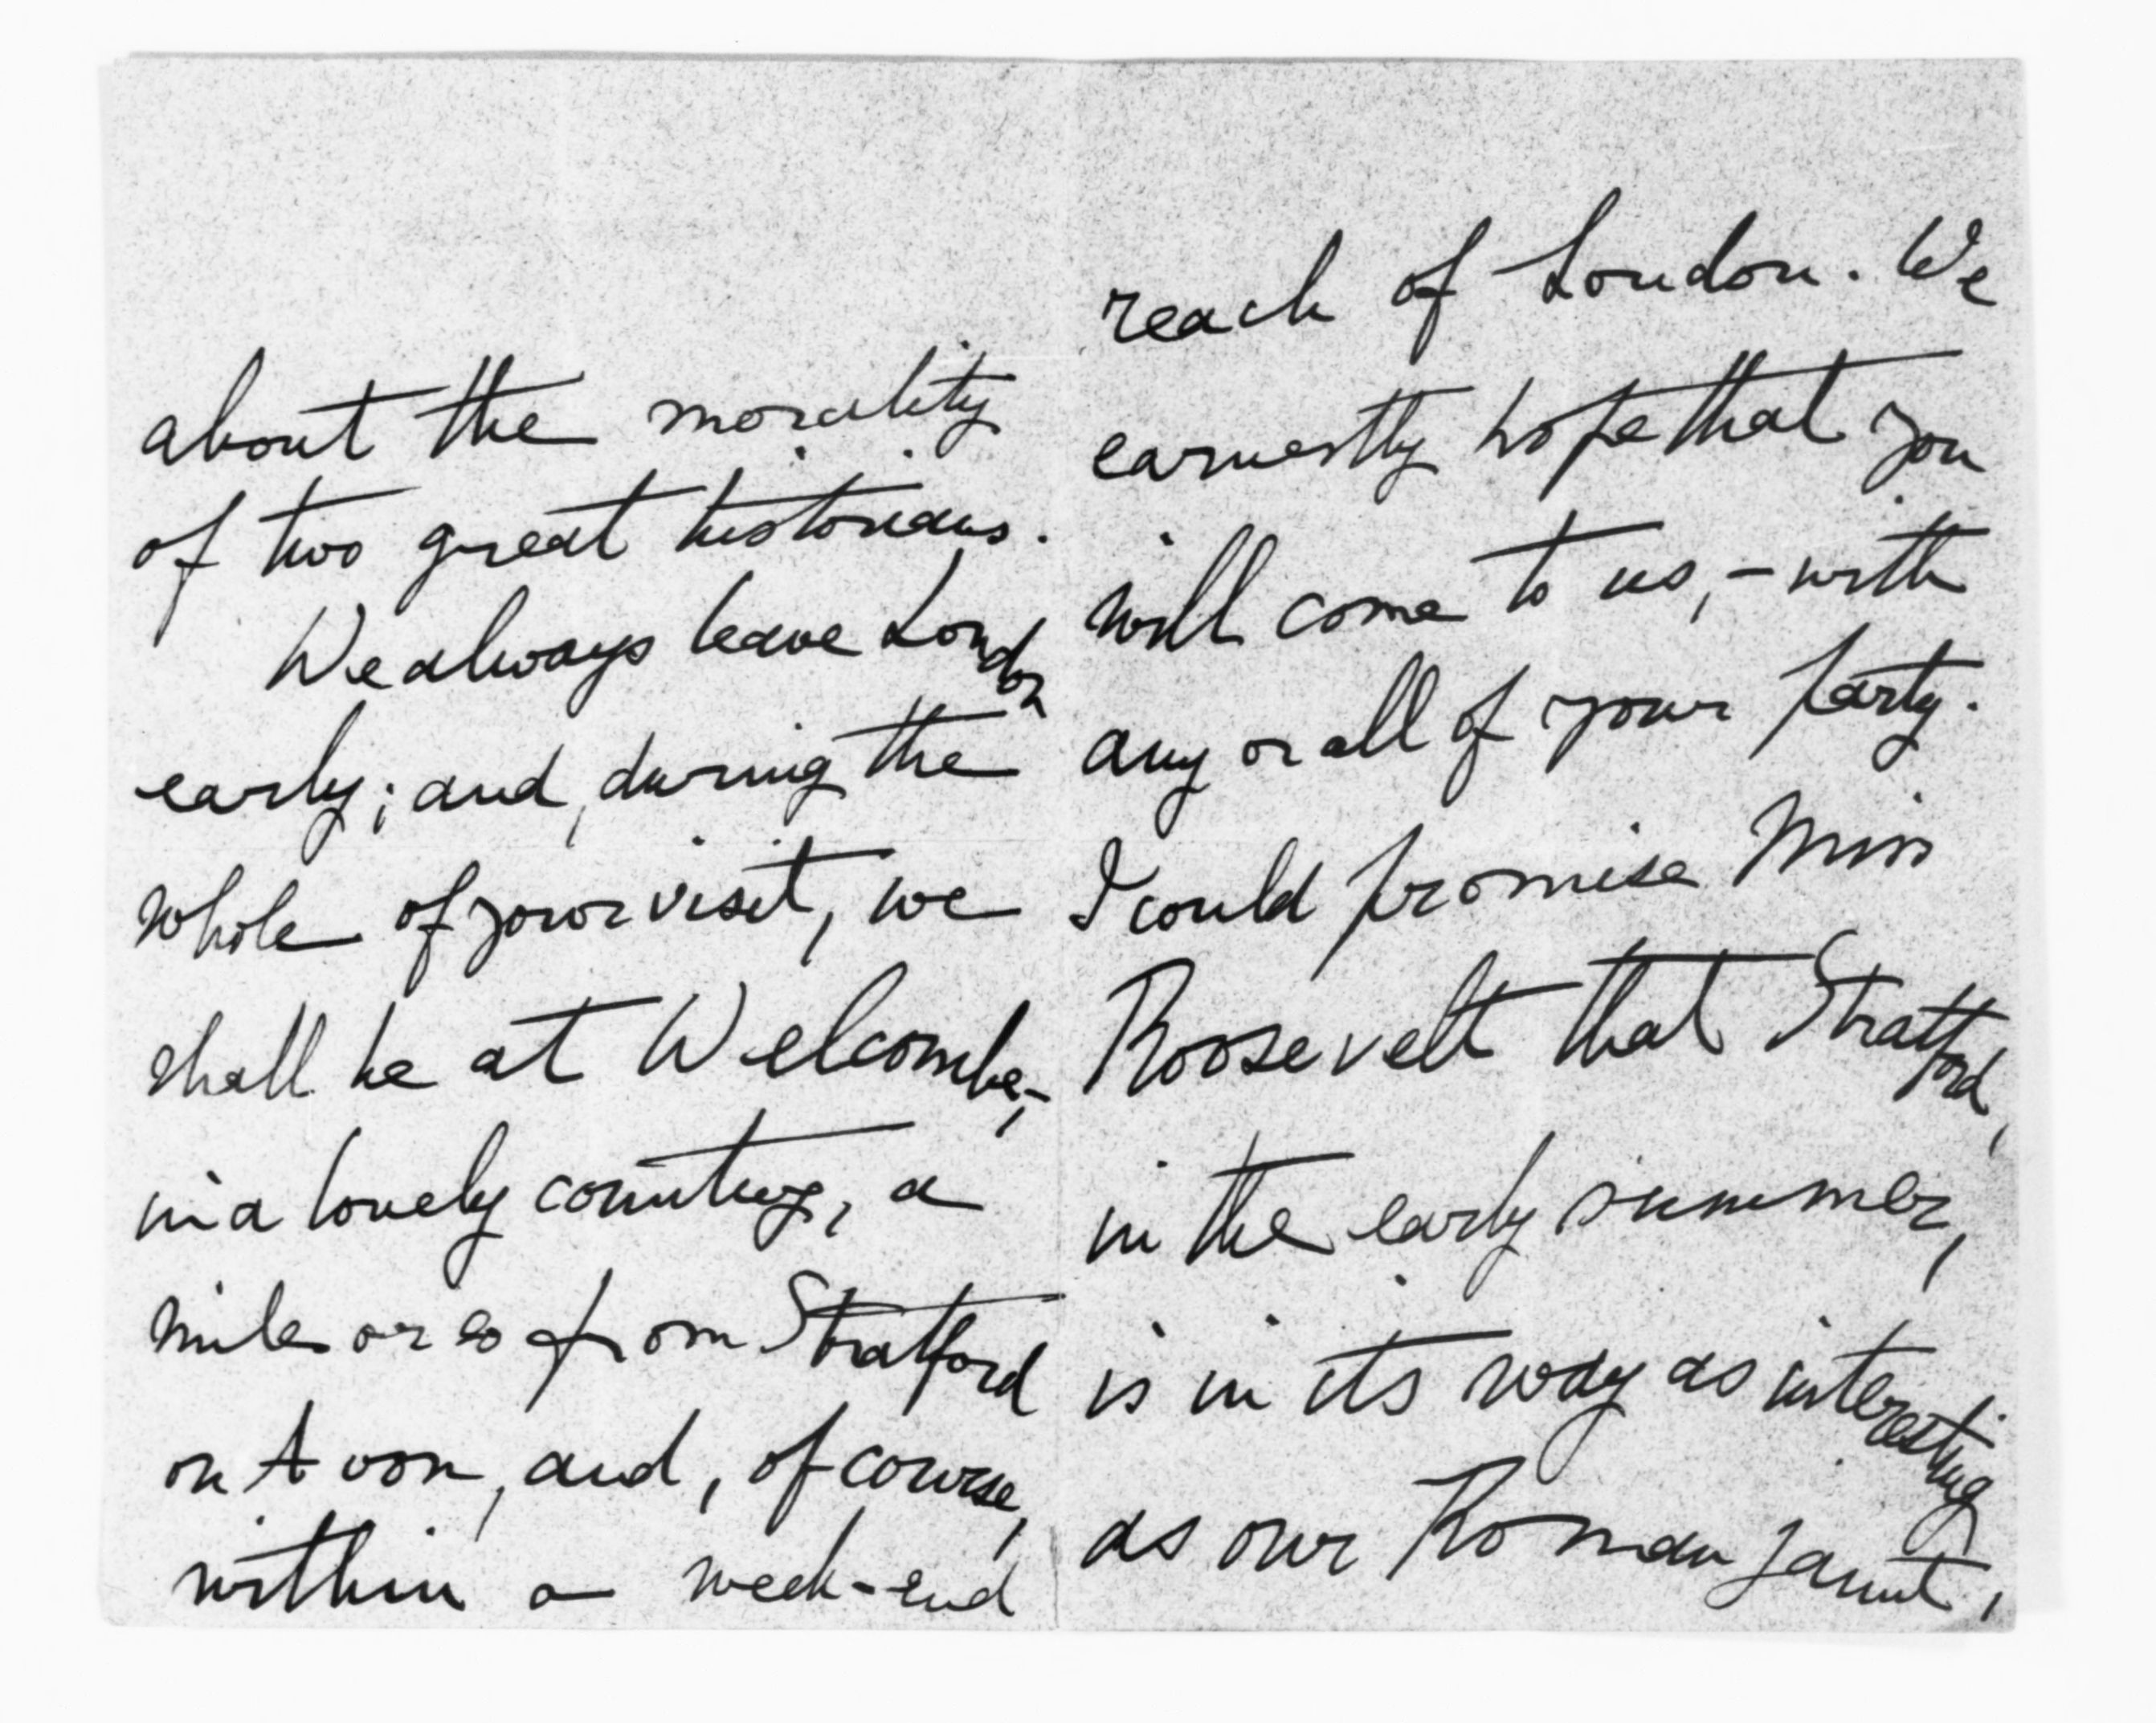 about the morality
of two great historians.
We always leave London
early; and, during the
whole of your visit, we
shall be at Welcombe,-
in a lovely country, a
mile or so from Stratford
on Avon, and, of course,
within a week-end
reach of London. We
earnestly hope that you
will come to us, - with
any or all of your party.
I could promise Miss
Roosevelt that Stratford,
in the early summer,
is in its way as interesting
as our Roman jaunt,